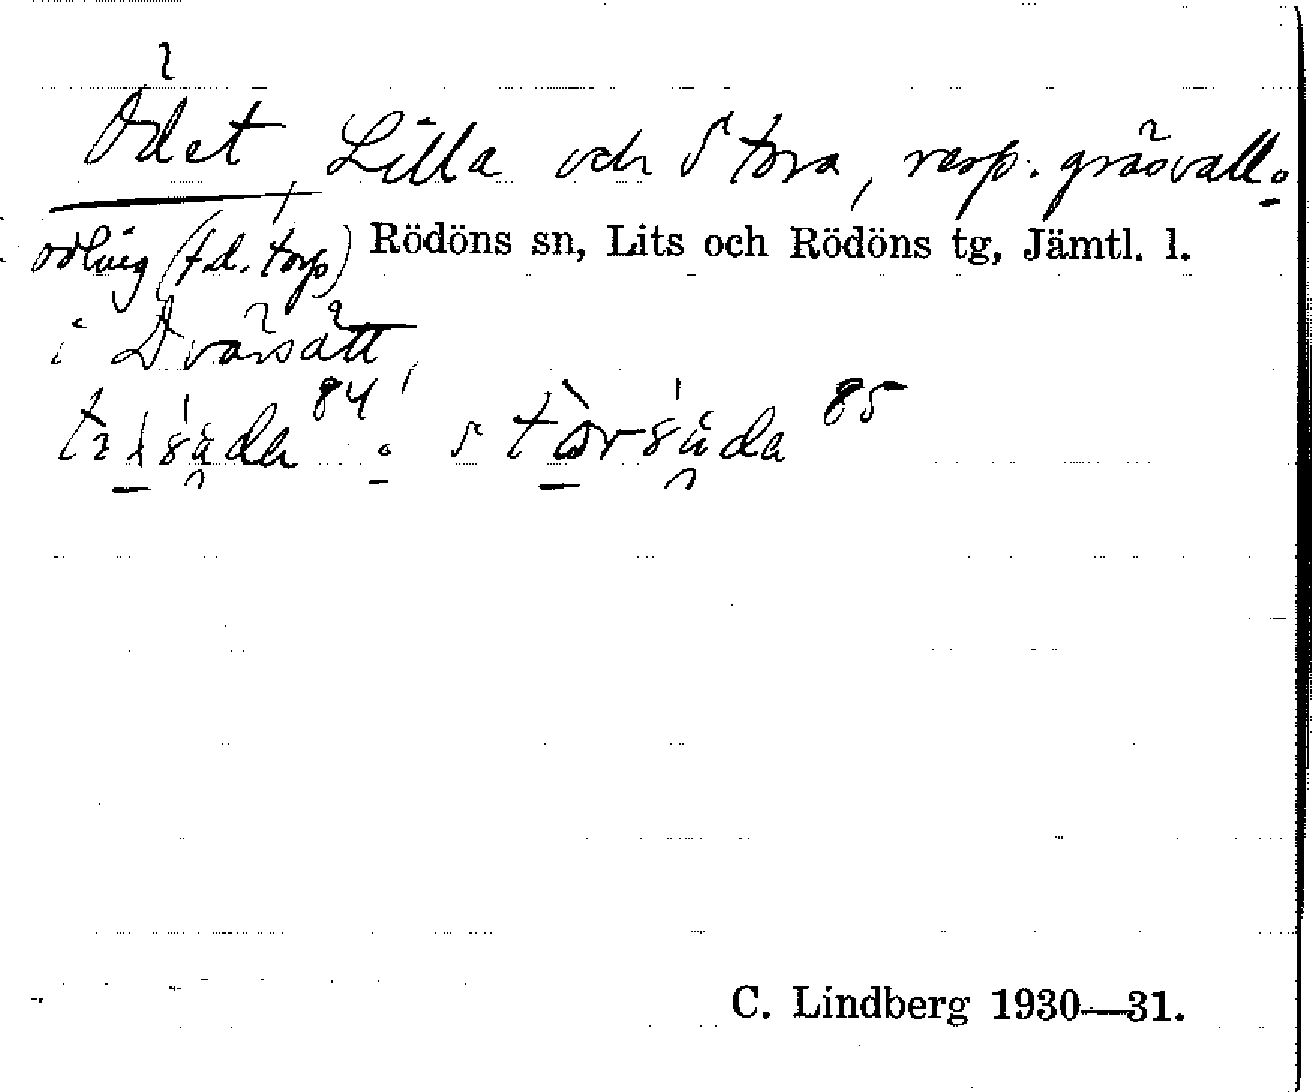 Ödet, Lilla och Stora, resp. gräsvall o.
odling (f.d. torp) Rödöns sn, Lits och Rödöns tg, Jämtl. l.
i Dvärsätt,
84 85
C. Lindberg 1930—31.